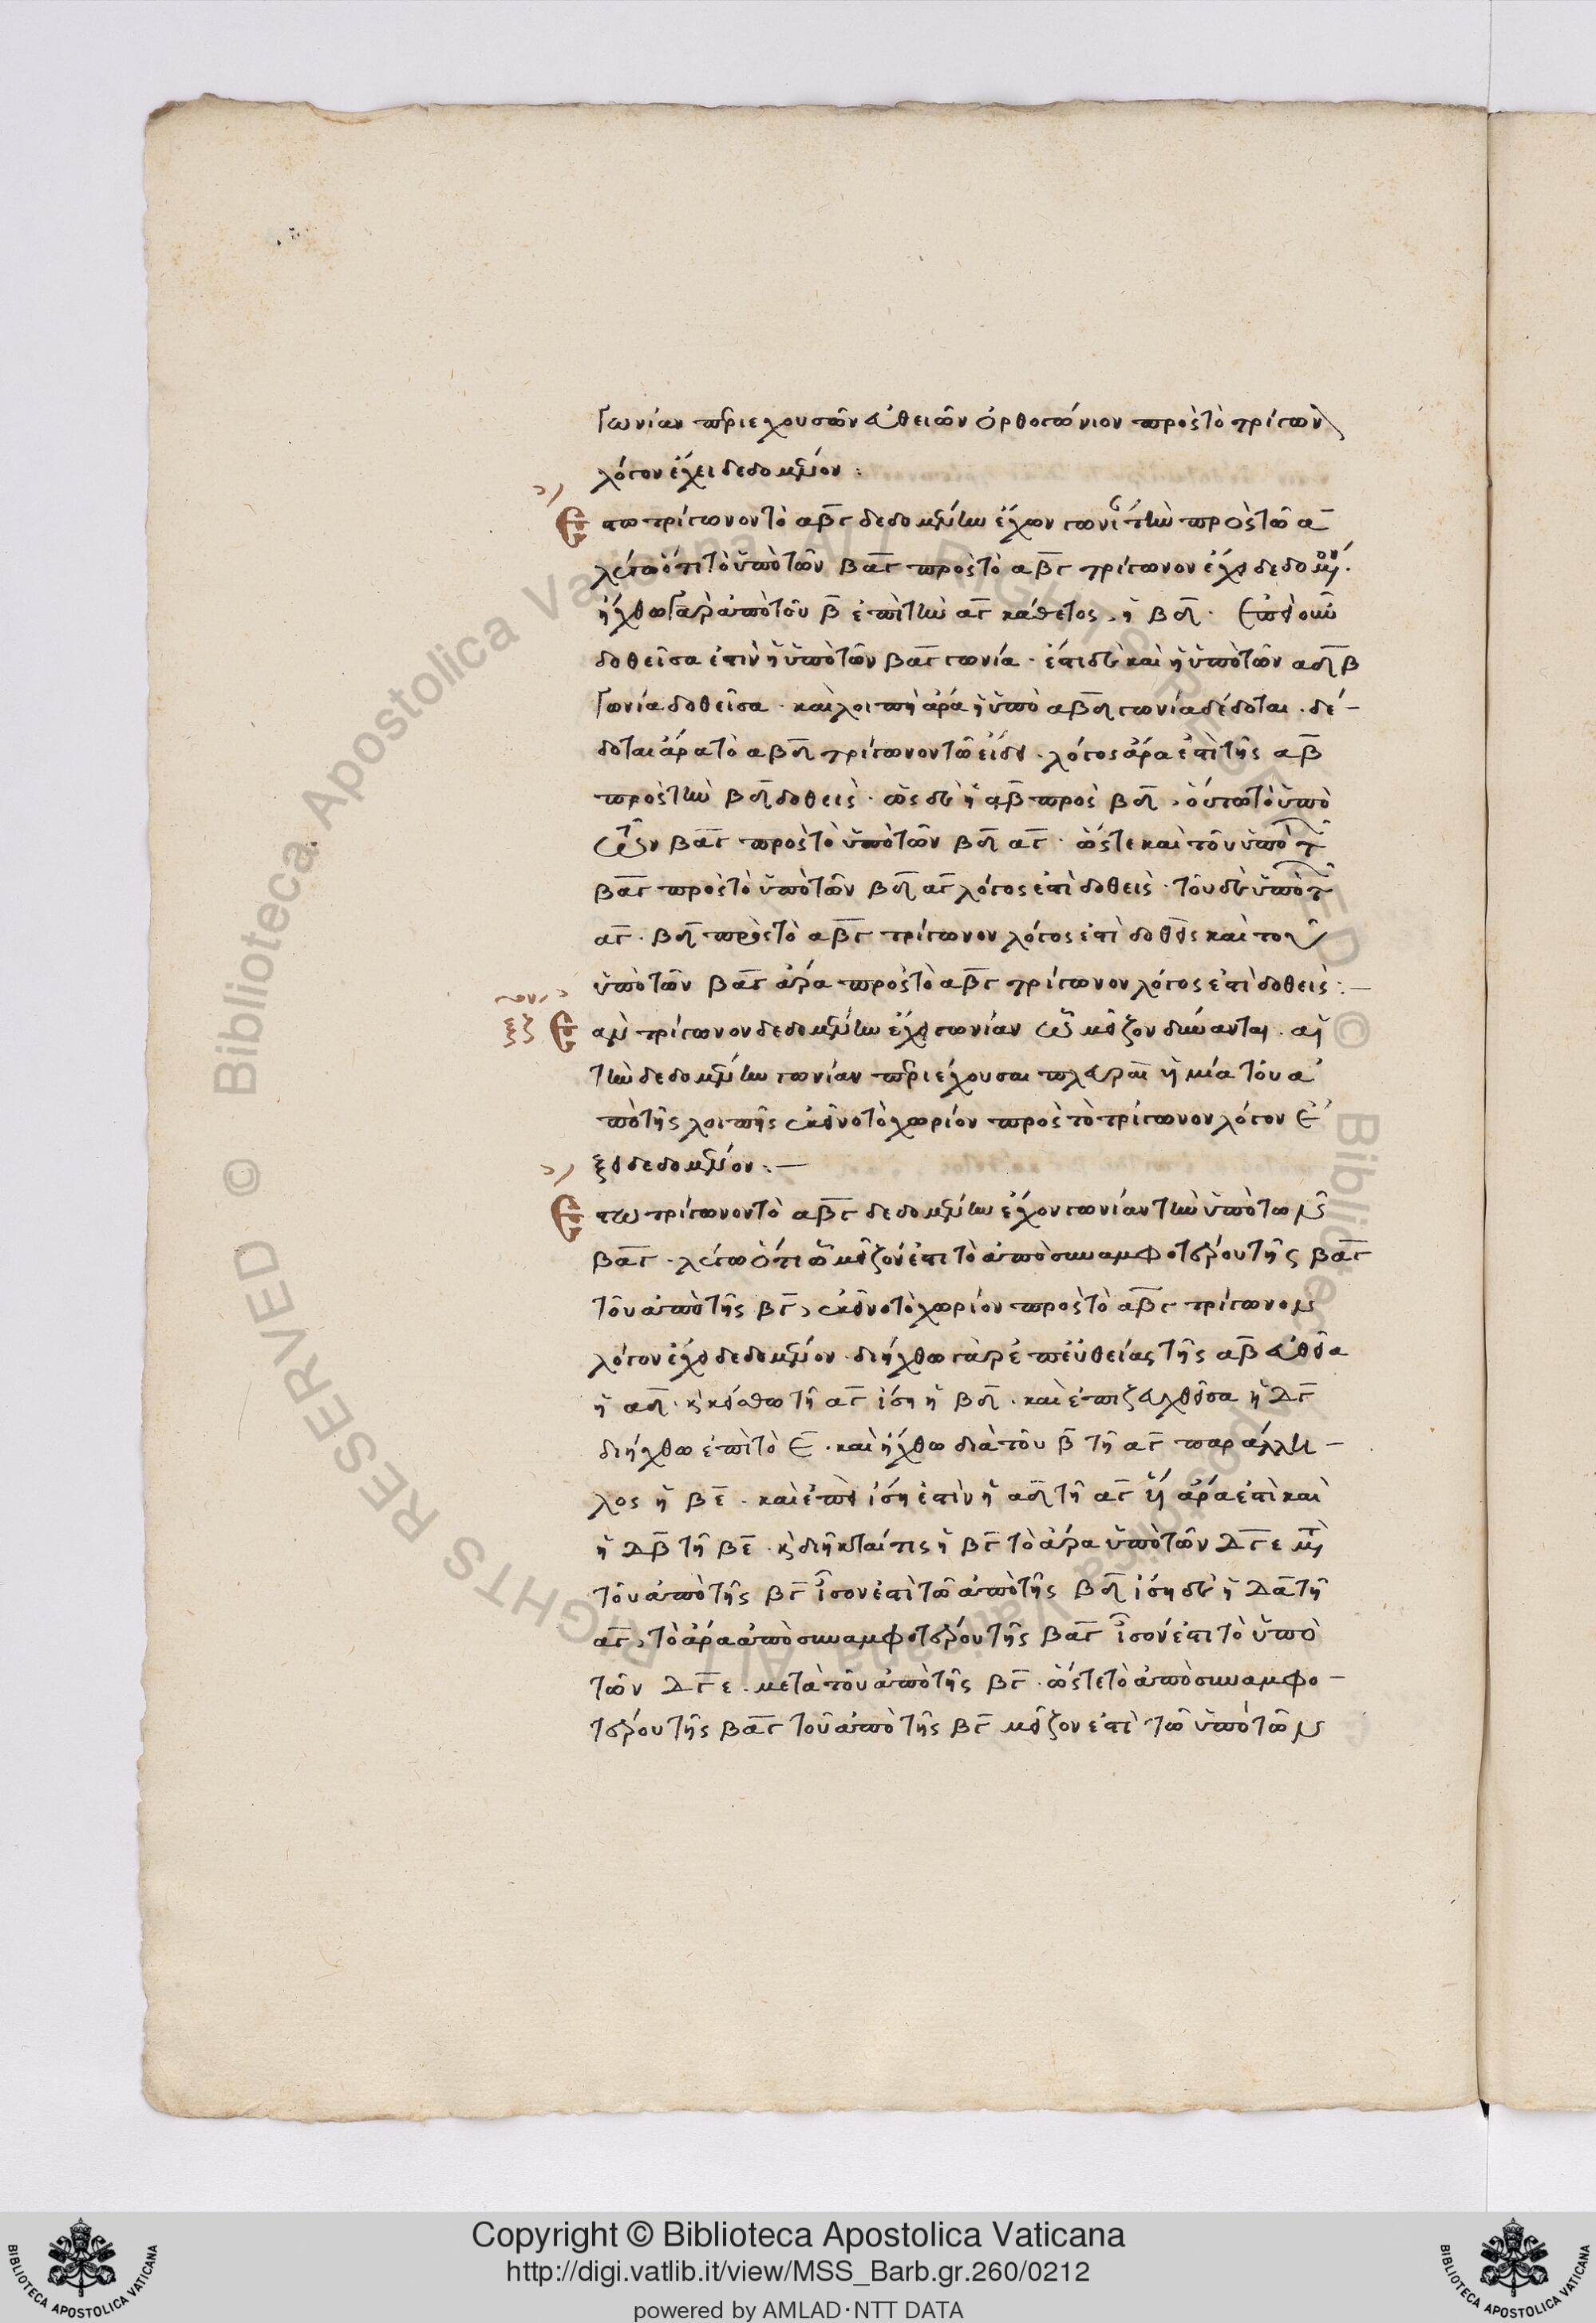 γωνίαν περιεχουσῶν εὐθειῶν ὀρθογώνιον πρὸς τὸ τρίγωνον
λόγον ἔχει δεδομένον :
Ἔστω τρίγωνον τὸ αβγ δεδομένην ἔχον γωνίαν τὴν πρὸς τῶ α
λέγω ὅτι τὸ ὑπὸ τῶν βαγ πρὸς τὸ αβγ τρίγωνον ἔχει δεδομένον.
ἤχθω γὰρ ἀπὸ τοῦ β ἐπὶ τὴν αγ κάθετος, ἡ βδ. ἐπεὶ οὖν
δοθεῖσα ἐστὶν ἡ ὑπὸ τῶν βαγ γωνία. ἔστι δὲ καὶ ἡ ὑπὸ τῶν αδβ
γωνία δοθεῖσα. καὶ λοιπὴ ἄρα ἡ ὑπὸ αβδ γωνία δέδοται. δέ-
δοται ἄρα τὸ αβδ τρίγωνον τῶ εἴδει. λόγος ἄρα ἐστὶ τῆς αβ
πρὸς τὴν βδ δοθείς. ὡς δὲ ἡ αβ πρὸς βδ, οὕτω τὸ ὑπὸ
τῶν βαγ πρὸς τὸ ὑπὸ τῶν βδ αγ. ὥστε καὶ τοῦ ὑπὸ τῶν
βαγ πρὸς τὸ ὑπὸ τῶν βδ αγ λόγος ἐστὶ δοθείς. τοῦ δὲ ὑπὸ τῶν
αγ. βδ πρὸς τὸ αβγ τρίγωνον λόγος ἐστὶ δοθεὶς καὶ τοῦ
ὑπὸ τῶν βαγ ἄρα πρὸς τὸ αβγ τρίγωνον λόγος ἐστὶ δοθείς :-
ξζ Ἐὰν τρίγωνον δεδομένην ἔχει γωνίαν ὧ μεῖζον δύνανται. αἱ
τὴν δεδομένην γωνίαν περιέχουσαι πλευραὶ ἡ μία τοῦ ἀ
πὸ τῆς λοιπῆς ἐκεῖνο τὸ χωρίον πρὸς τὸ τρίγωνον λόγον ἕ
ξει δεδομένον :-
Ἔστω τρίγωνον τὸ αβγ δεδομένην ἔχον γωνίαν τὴν ὑπὸ τῶν
βαγ. λέγω ὅτι ὧ μεῖζόν ἐστι τὸ ἀπὸ συναμφοτέρου τῆς βαγ
τοῦ ἀπὸ τῆς βγ, ἐκεῖνο τὸ χωρίον πρὸς τὸ αβγ τρίγωνον
λόγον ἔχει δεδομένον. διήχθω γὰρ ἐπευθείας τῆς αβ εὐθεῖα
ἡ αδ. κ κείσθω τῆ αγ ἴση ἡ βδ. καὶ ἐπιζευχθεῖσα ἡ Δγ
διήχθω ἐπὶ τὸ ε. καὶ ἤχθω διὰ τοῦ β τῆ αγ παράλλη-
λος ἡ βε. καὶ ἐπεὶ ἴση ἐστὶν ἡ αδ τῆ αγ ἴση ἄρα ἐστὶ καὶ
ἡ Δβ τῆ βε. κ διῆκται τις ἡ βγ τὸ ἄρα ὑπὸ τῶν Δγε μετὰ
τοῦ ἀπὸ τῆς βγ ἴσον ἐστὶ τῶ ἀπὸ τῆς βδ ἴση δὲ ἡ Δα τῆ
αγ, τὸ ἄρα ἀπὸ συναμφοτέρου τῆς βαγ ἴσον ἐστι τὸ ὑπὸ
τῶν Δγε. μετὰ τοῦ ἀπὸ τῆς βγ. ὥστε τὸ ἀπὸ συναμφο-
τέρου τῆς βαγ τοῦ ἀπὸ τῆς βγ μεῖζον ἐστὶ τῶ ὑπὸ τῶν
Copyright © Biblioteca Apostolica Vaticana
http://digi.vatlib.it/view/MSS_Barb.gr.260/0212
powered by AMLAD·NTT DATA